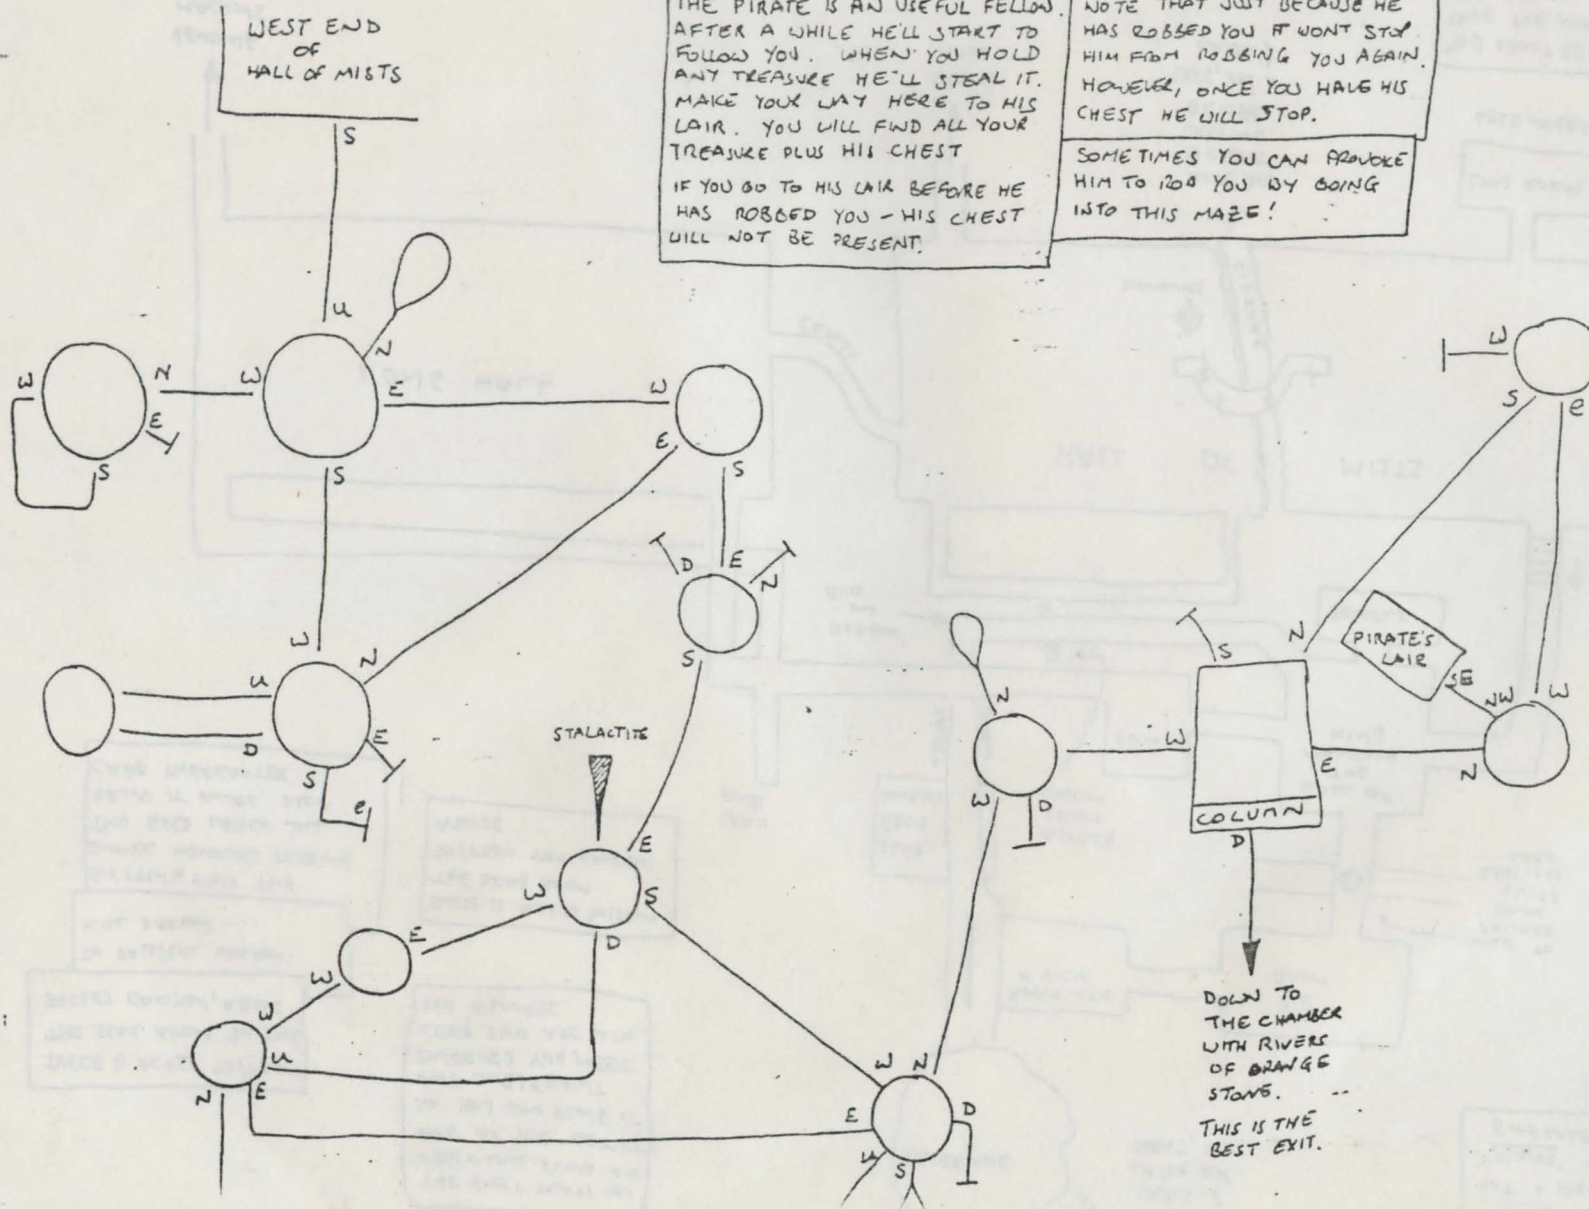 WEST END
OF
HALL OF MISTS
THE PIRATE IS AN USEFUL FELLOW.
AFTER A WHILE HE'LL START TO
FOLLOW YOU. WHEN YOU HOLD
ANY TREASURE HE'LL STEAL IT.
MAKE YOUR WAY HERE TO HIS
LAIR. YOU WILL FIND ALL YOUR
TREASURE PLUS HIS CHEST
IF YOU GO TO HIS LAIR BEFORE HE
HAS ROBBED YOU - HIS CHEST
WILL NOT BE PRESENT.
NOTE THAT JUST BECAUSE HE
HAS ROBBED YOU IT WONT STOP
HIM FROM ROBBING YOU AGAIN.
HOWEVER, ONCE YOU HAVE HIS
CHEST HE WILL STOP.
SOMETIMES YOU CAN PROVOKE
HIM TO ROB YOU BY GOING
INTO THIS MAZE!
S
U
N
W
N
E
S
W
E
S
W
E
S
W
E
S
D
E
N
S
W
N
U
D
E
S
e
STALACTITE
E
W
S
D
E
W
W
U
E
N
W
N
E
D
U
S
N
W
D
S
N
W
E
COLUMN
D
PIRATE'S
LAIR
SE
NW
W
N
W
S
e
DOWN TO
THE CHAMBER
WITH RIVERS
OF ORANGE
STONE.
THIS IS THE
BEST EXIT.